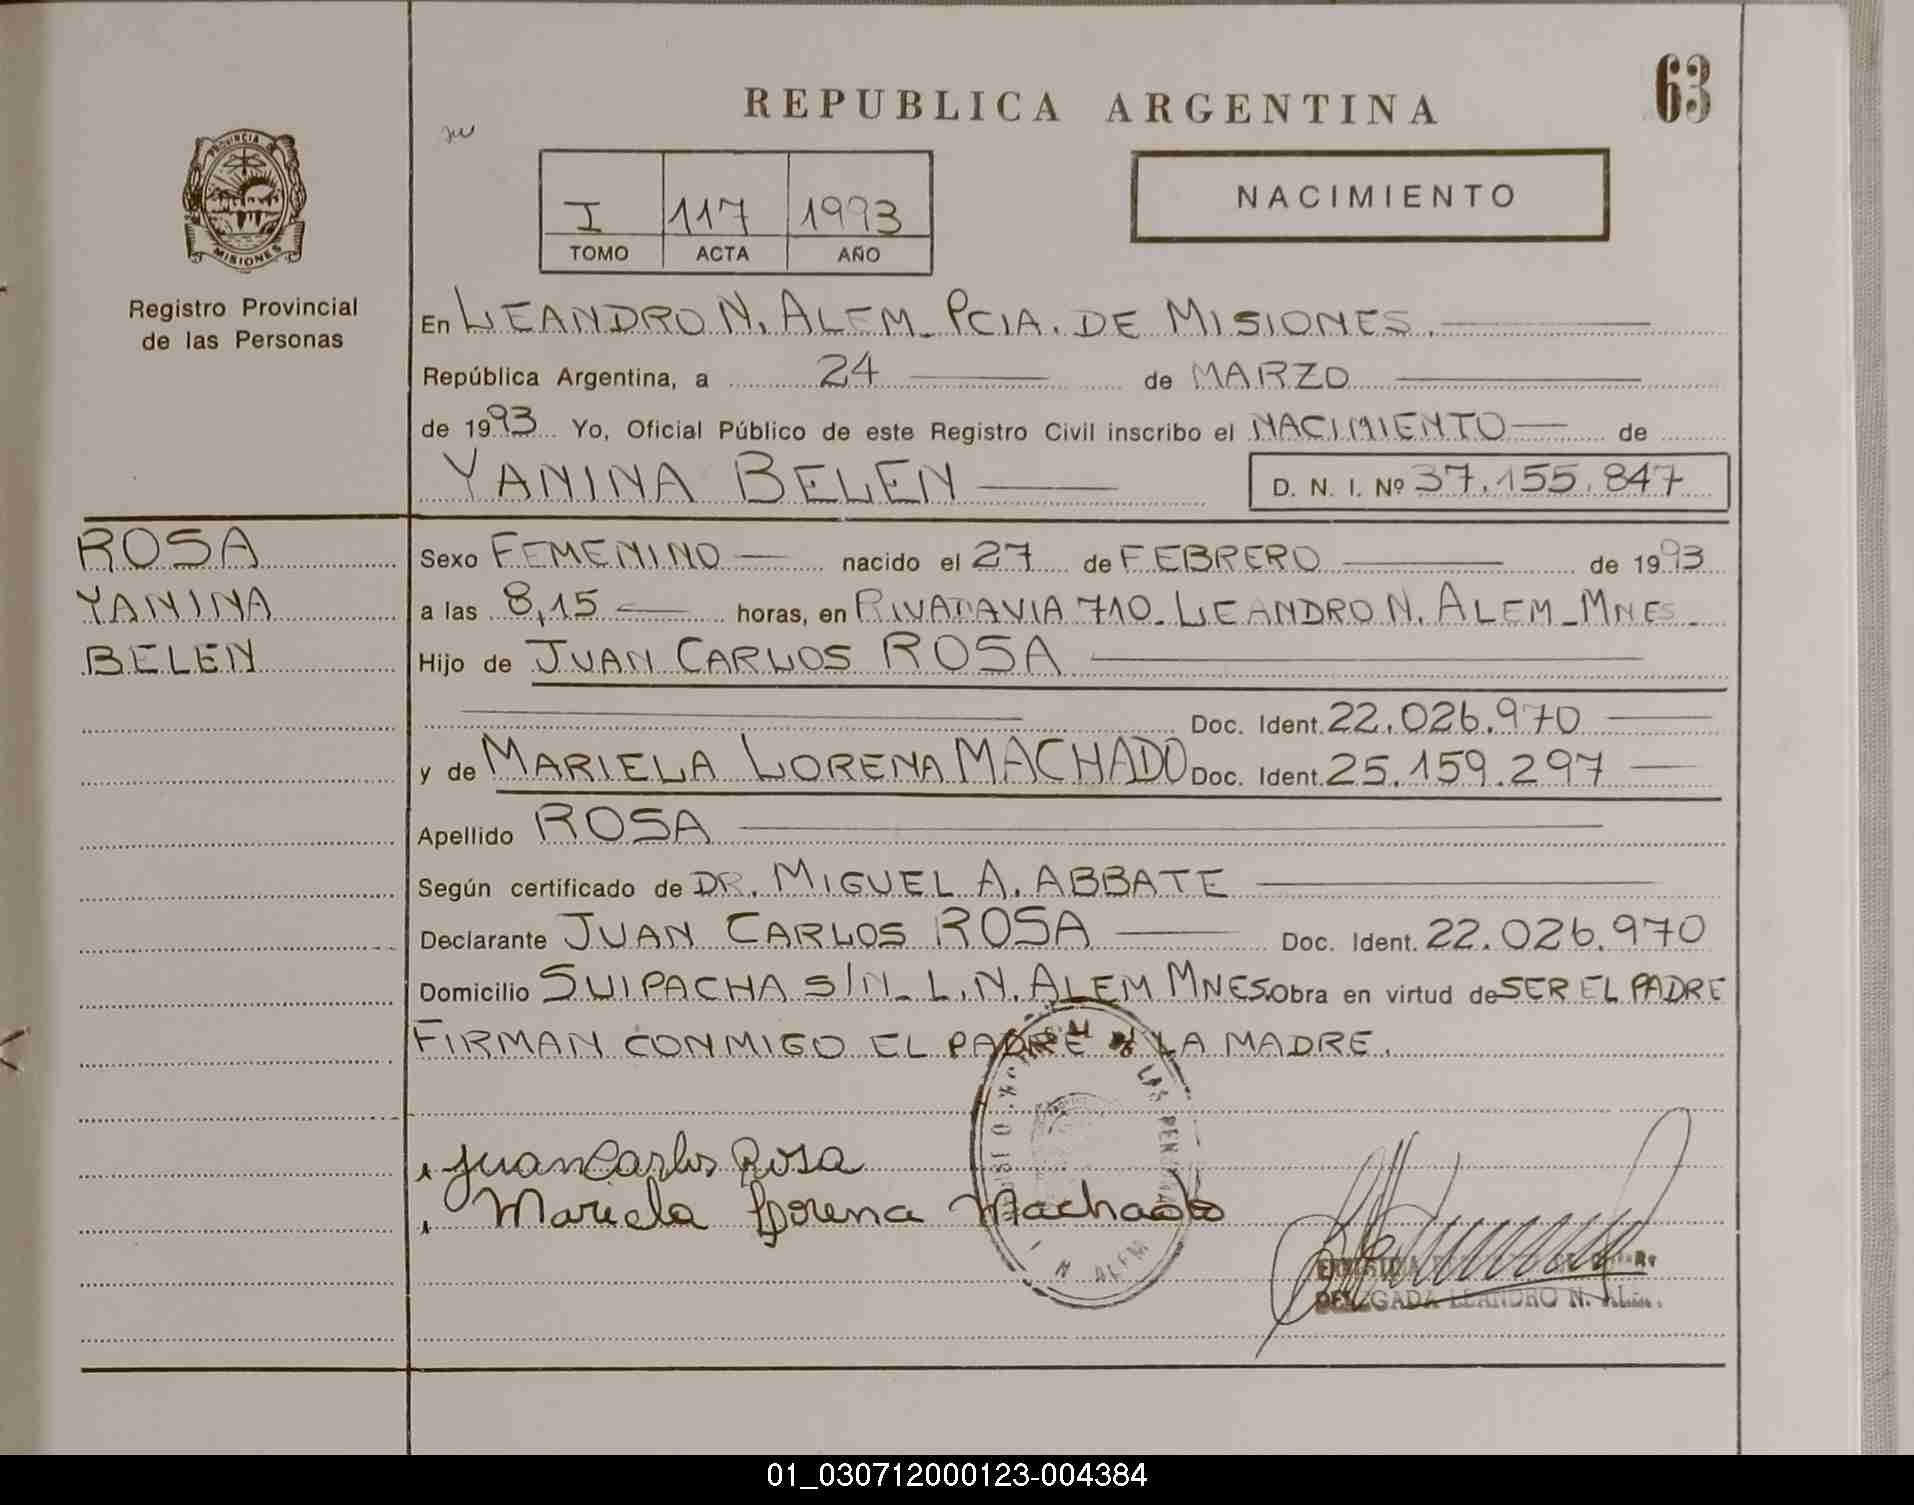 63
REPUBLICA ARGENTINA
PROVINCIA DE
MISIONES
Registro Provincial
de las Personas
I 117 1993
TOMO ACTA AÑO
NACIMIENTO
En LEANDRO N. ALEM_PCIA. DE MISIONES.
República Argentina, a 24 de MARZO
de 1993 Yo, Oficial Público de este Registro Civil inscribo el NACIMIENTO de
YANINA BELEN D. N. I. Nº 37.155.847
ROSA
YANINA
BELEN
Sexo FEMENINO nacido el 27 de FEBRERO de 1993
a las 8,15 horas, en RIVADAVIA 710_LEANDRO N. ALEM_MNES_
Hijo de JUAN CARLOS ROSA
Doc. Ident. 22.026.970
y de MARIELA LORENA MACHADO Doc. Ident. 25.159.297
Apellido ROSA
Según certificado de DR. MIGUEL A. ABBATE
Declarante JUAN CARLOS ROSA Doc. Ident. 22.026.970
Domicilio SUIPACHA S/N_L.N. ALEM MNES. Obra en virtud de SER EL PADRE
FIRMAN CONMIGO EL PADRE Y LA MADRE.
Juan Carlos Rosa
Mariela Lorena Machado
N ALEM
DELEGADA LEANDRO N.
01_030712000123-004384